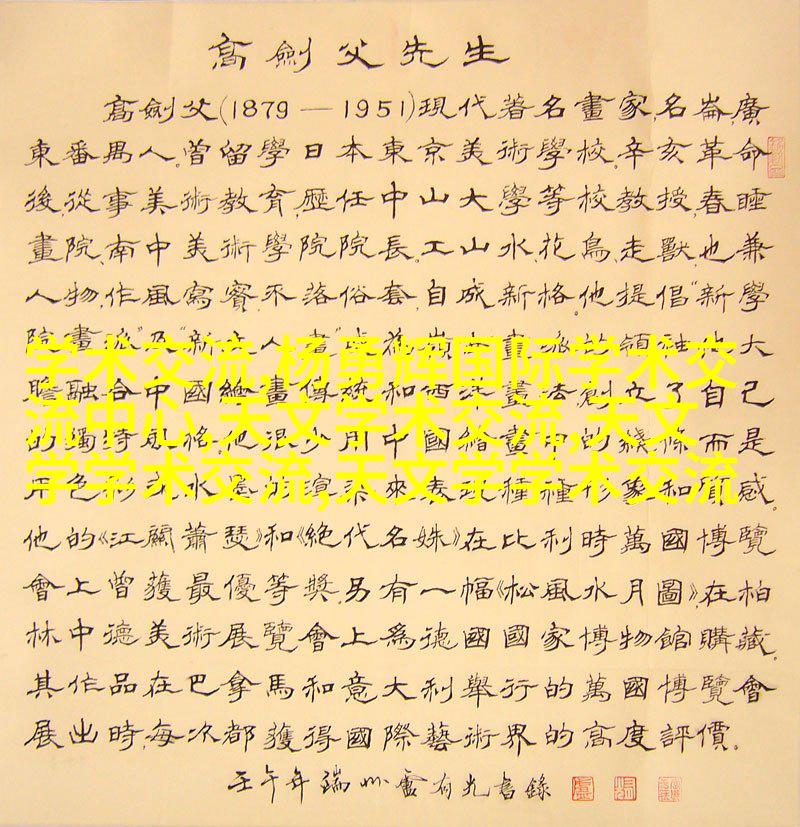 高劍父先生
高劍父(1879—1951)現代著名畫家,名崙,廣
東番禺人。曾留學日本東京美術學校,辛亥革命
後,從事美術教育,歷任中山大學等校教授,春睡
畫院,南中美術學院院長。工山水,花鳥,走獸,也兼
人物,作風寫實,不落俗套,自成新格。他提倡"新學
院畫派"及"新文人畫"
學术交流,杨勇辉国际学术交
流中心,天文学术交流,天文
学学术交流,天文学学术交流
膽融合中國繪畫傳統和西洋畫法,創立了自己
的獨特風格,他很少用中國繪畫中的綫條,而是
用色彩
他的《江關蕭瑟》和《絕代名姝》在比利時萬國博覽
會上曾獲最優等獎,另有一幅《松風水月圖》,在柏
林中德美術展覽會上爲德國國家博物館購藏。
其作品在巴拿馬和意大利舉行的萬國博覽會
展出時,每次都獲得國際藝術界的高度評價。
壬午年端州盧有光書錄